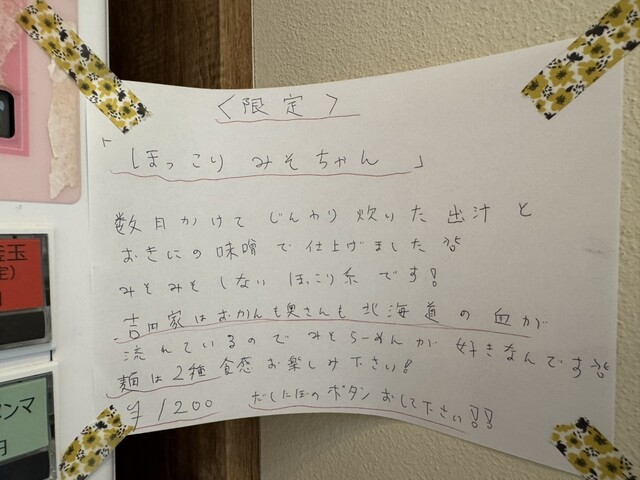 〈限定〉
「ほっこりみそちゃん」
数日かけてじんわり炊いた出汁と
おきにの味噌で仕上げました
みそみそしないほっこり系です!
吉田家はおかんも奥さんも北海道の血が
流れているのでみそらーめんが好きなんです
麺は2種食感お楽しみ下さい!
¥1200 だしたぼのボタンおして下さい!!
玉
定)
円
ンマ
円